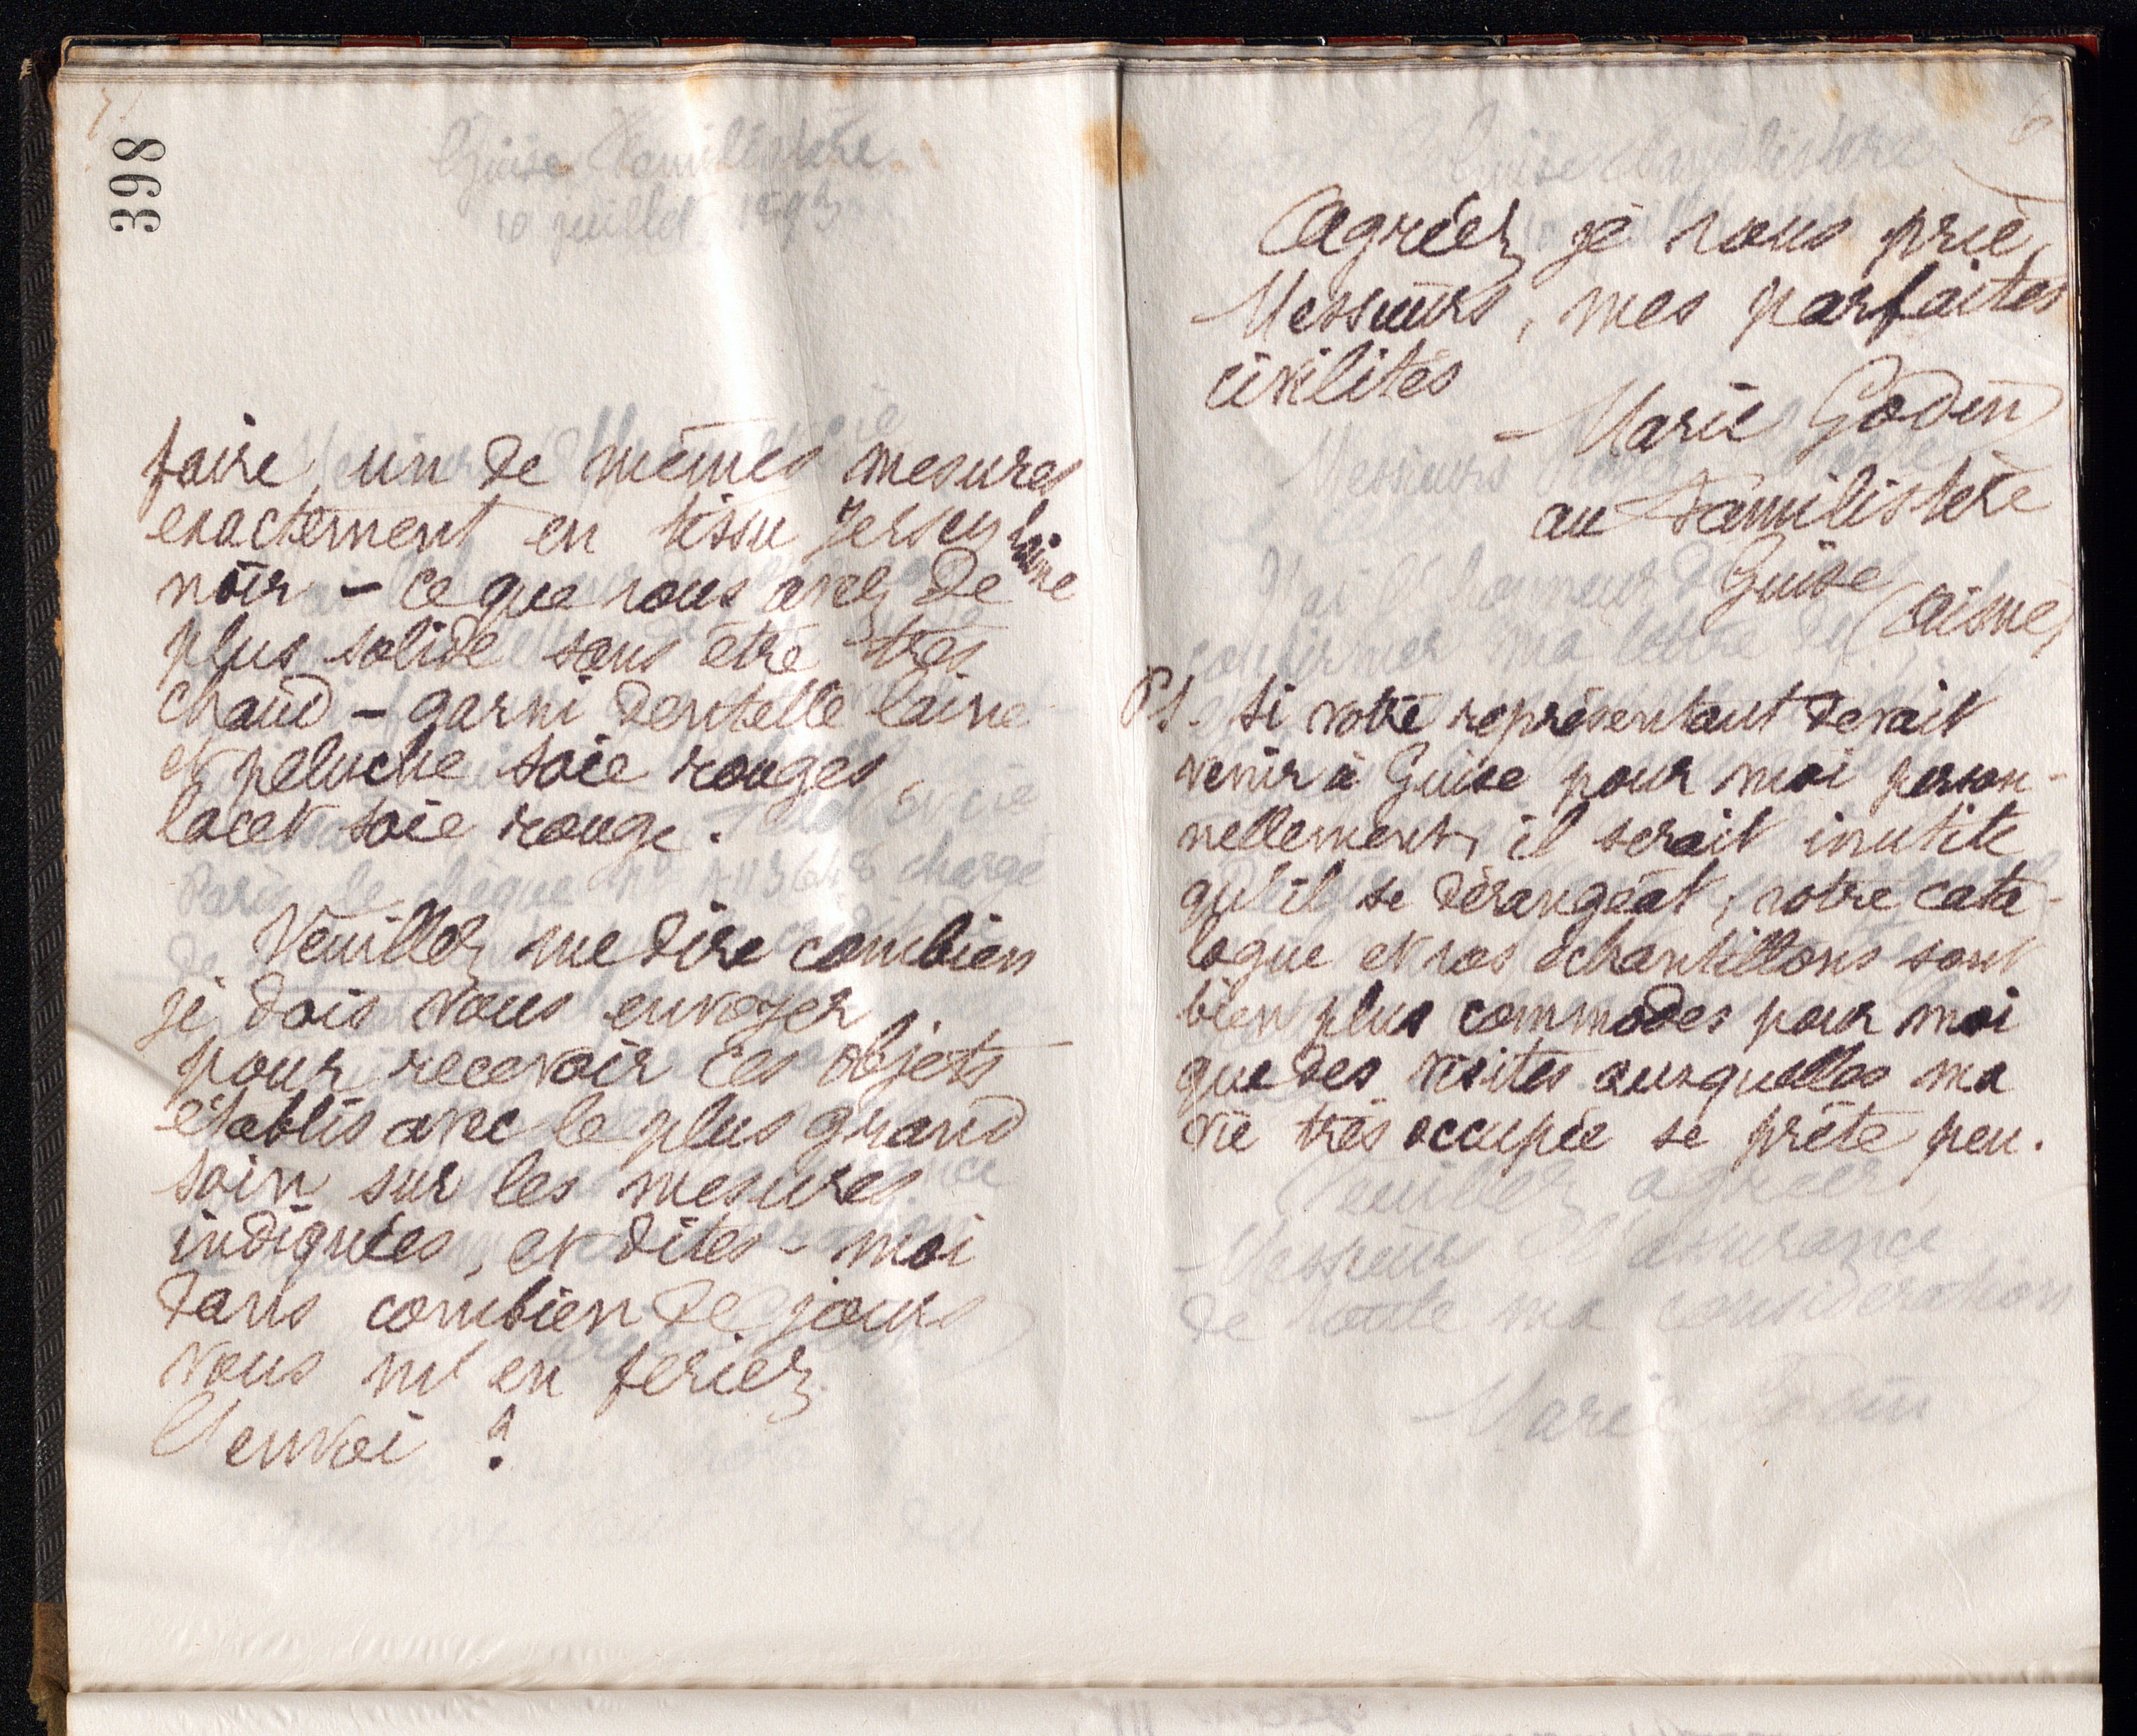 398
faire, un de mêmes mesures
exactement en tissu Jersey laine
noir – ce que vous avez de
plus solide sans être très
chaud – garni dentelle laine
et peluche soie rouges,
lacet soie rouge.
Veuillez me dire combien
je dois vous envoyer
pour recevoir ces objets
établis avec le plus grand
soin sur les mesures
indiquées, et dites-moi
dans combien de jours
vous m'en feriez
l'envoi ?
Agréez, je vous prie,
Messieurs, mes parfaites
civilités
Marie Godin
au Familistère
Guise (Aisne)
PS - Si votre représentant devait
venir à Guise pour moi person-
nellement, il serait inutile
qu'il se dérangeât, votre cata-
logue et vos échantillons sont
bien plus commodes pour moi
que des visites auxquelles ma
vie très occupée se prête peu.
Guise Familistère
10 juillet 1893
Veuillez agréer,
Messieurs l'assurance
de toute ma considération
Marie Godin